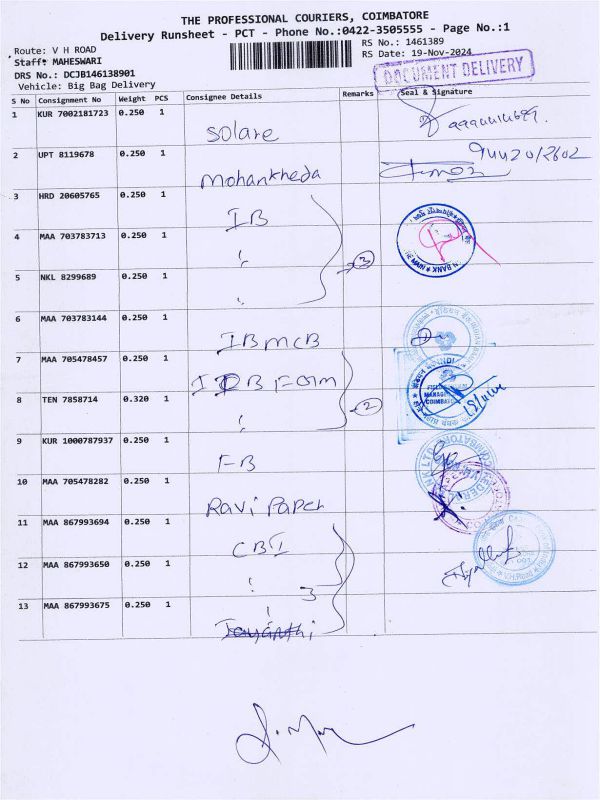 THE PROFESSIONAL COURIERS, COIMBATORE
Delivery Runsheet - PCT - Phone No.:0422-3505555 - Page No.:1
Route: V H ROAD
RS No.: 1461389
Staff: MAHESWARI
RS Date: 19-Nov-2024
DRS No.: DCJB146138901
DOCUMENT DELIVERY
Vehicle: Big Bag Delivery
S No Consignment No Weight PCS Consignee Details Remarks Seal & Signature
1 KUR 7002181723 0.250 1 Solare
2 UPT 8119678 0.250 1 Mohankheda
3 HRD 20605765 0.250 1 IB
4 MAA 703783713 0.250 1 3
5 NKL 8299689 0.250 1
6 MAA 703783144 0.250 1 IBMCB
7 MAA 705478457 0.250 1 IB FGM
8 TEN 7858714 0.320 1 2
9 KUR 1000787937 0.250 1 FB
10 MAA 705478282 0.250 1 Ravi Paper
11 MAA 867993694 0.250 1 CBI
12 MAA 867993650 0.250 1 3
13 MAA 867993675 0.250 1